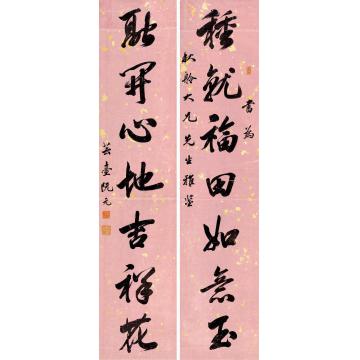 種就福田如意玉
書為
秋舲大兄先生雅鉴
融開心地吉祥花
芸臺阮元